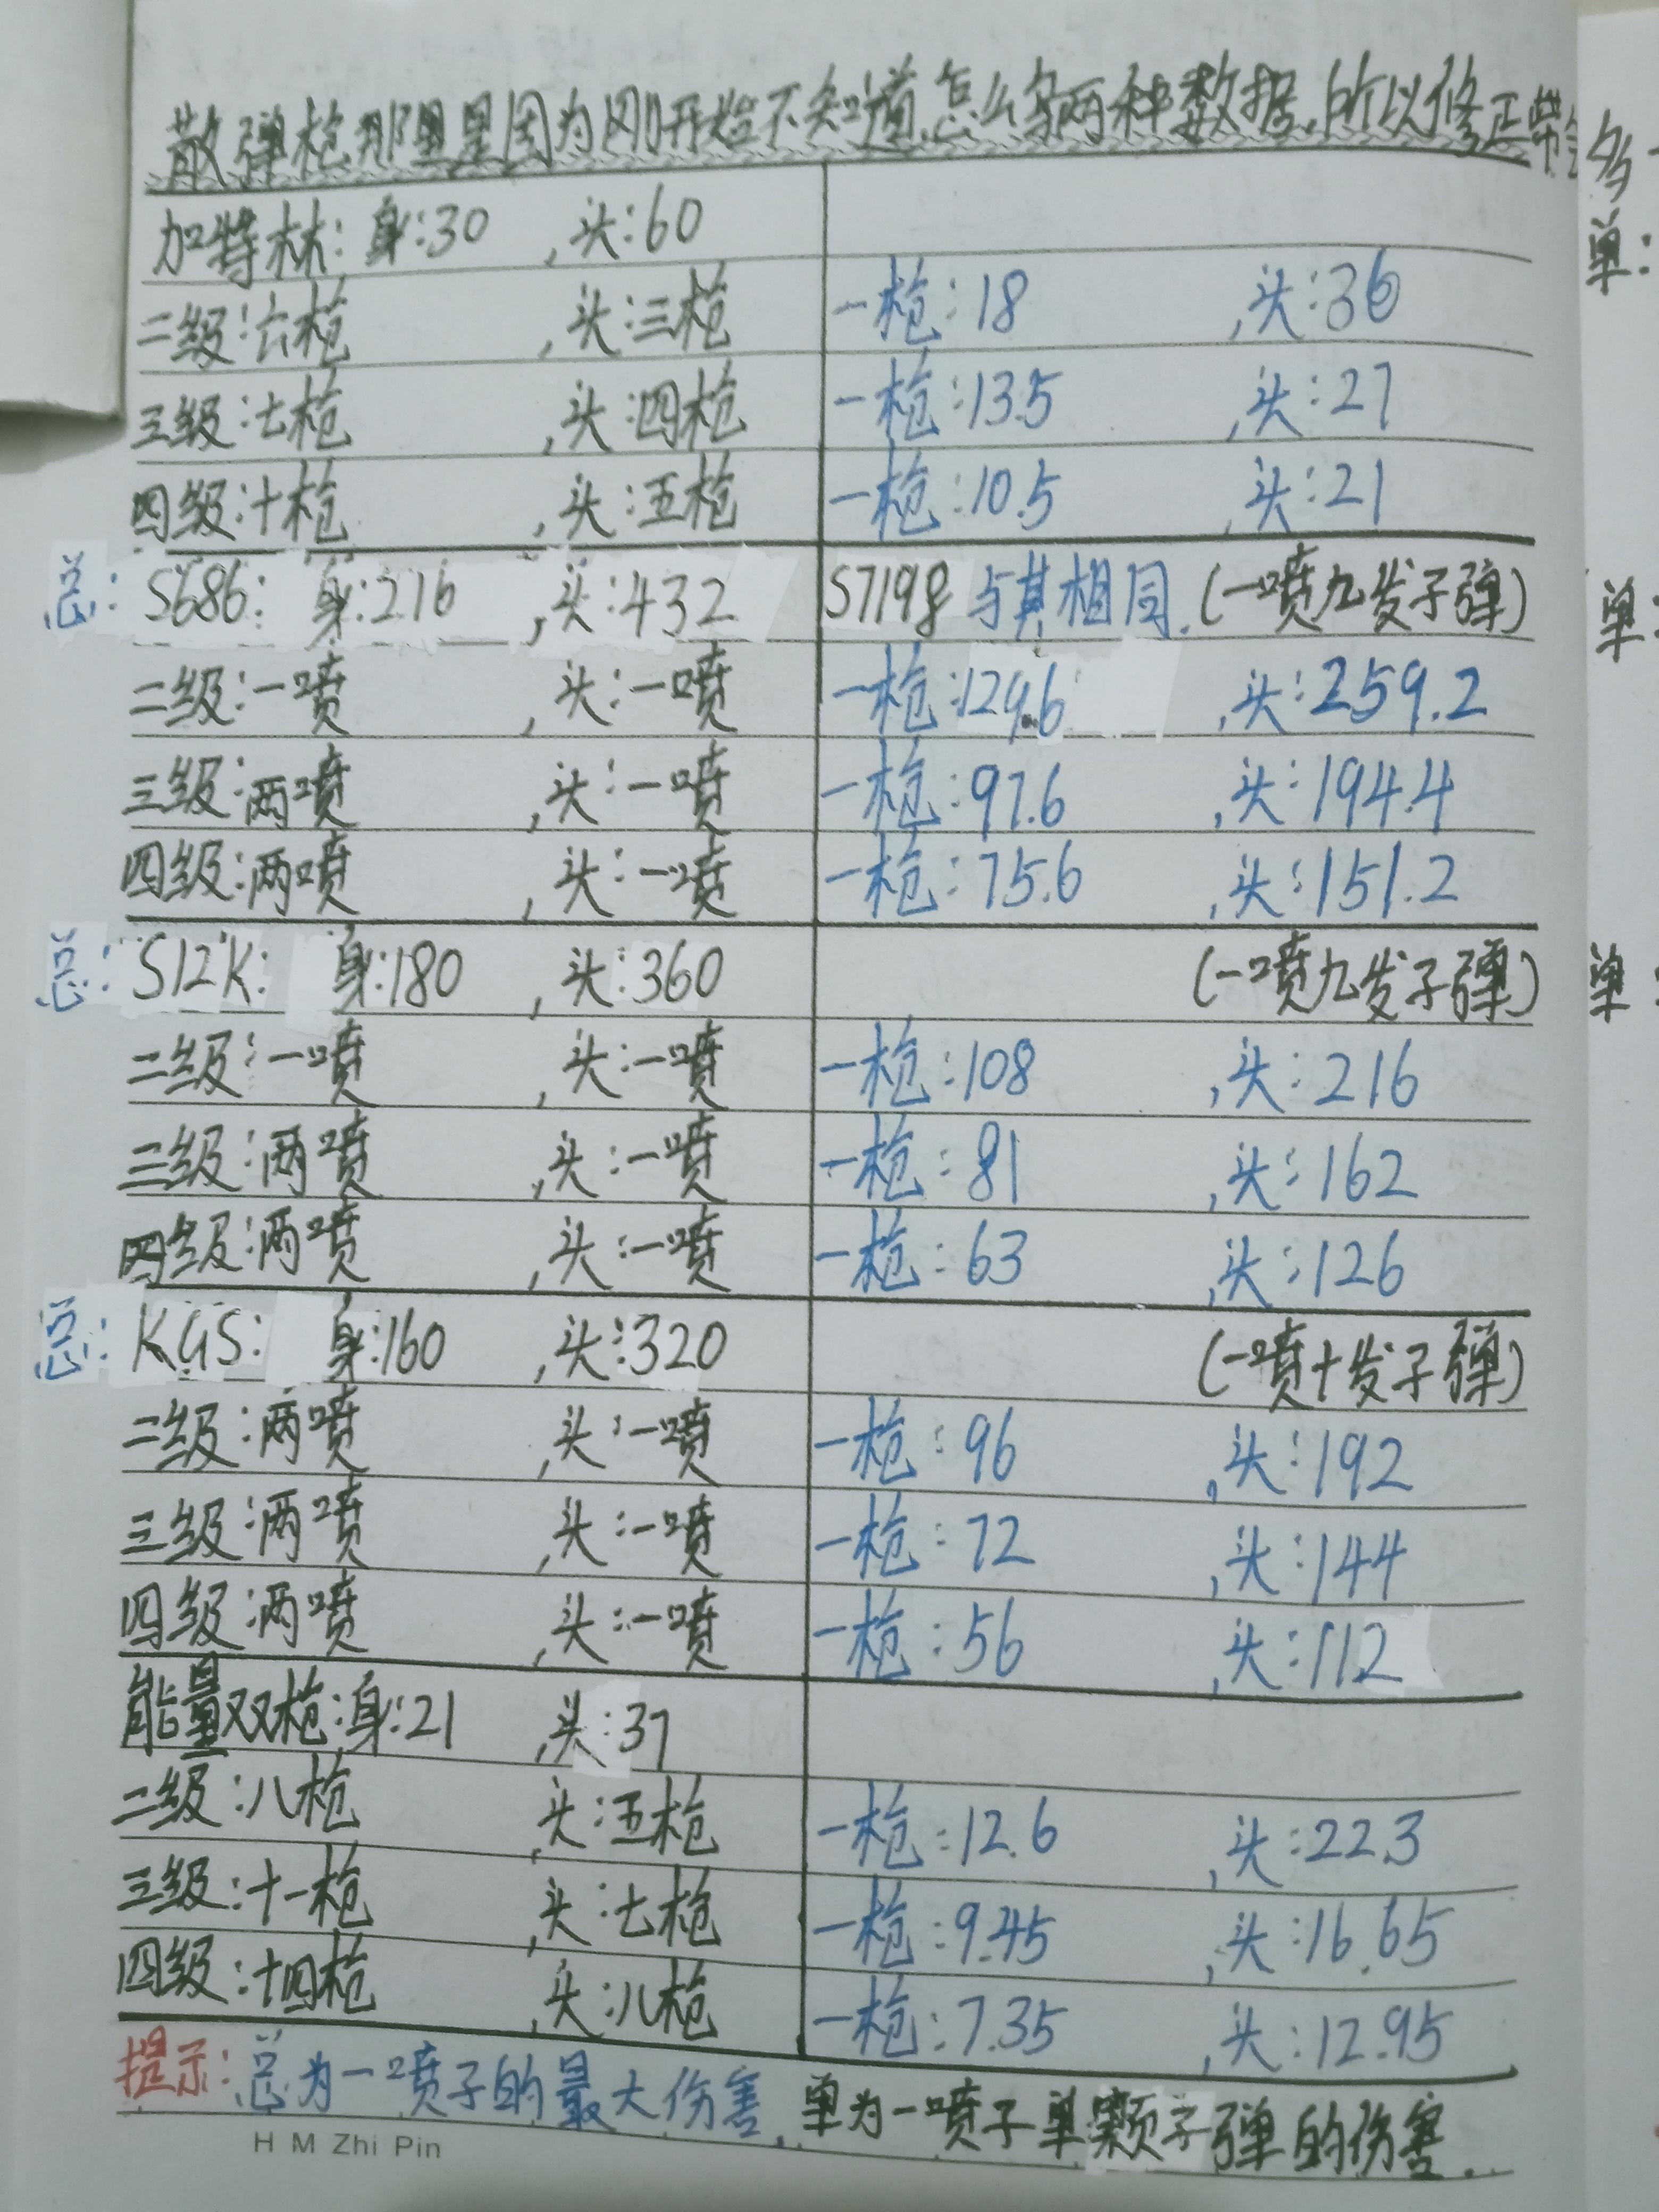 散弹枪那里是因为刚开始不知道怎么写两种数据,所以修正带
加特林:身:30 ,头:60
二级:六枪 ,头:三枪 一枪:18 ,头:36
三级:七枪 ,头:四枪 一枪:13.5 ,头:27
四级:十枪 ,头:五枪 一枪:10.5 ,头:21
总:S686:身:216 ,头:432 S7198与其相同.(一喷九发子弹)
二级:一喷 ,头:一喷 一枪:129.6 ,头:259.2
三级:两喷 ,头:一喷 一枪:97.6 ,头:194.4
四级:两喷 ,头:一喷 一枪:75.6 ,头:151.2
总:S12K:身:180 ,头:360 (一喷九发子弹)
二级:一喷 ,头:一喷 一枪:108 ,头:216
三级:两喷 ,头:一喷 一枪:81 ,头:162
四级:两喷 ,头:一喷 一枪:63 ,头:126
总:KGS:身:160 ,头:320 (一喷十发子弹)
二级:两喷 ,头:一喷 一枪:96 ,头:192
三级:两喷 ,头:一喷 一枪:72 ,头:144
四级:两喷 ,头:一喷 一枪:56 ,头:112
能量双枪:身:21 ,头:37
二级:八枪 ,头:五枪 一枪:12.6 ,头:22.3
三级:十一枪 ,头:七枪 一枪:9.45 ,头:16.65
四级:十四枪 ,头:八枪 一枪:7.35 ,头:12.95
提示:总为一喷子的最大伤害,单为一喷子单颗子弹的伤害.
H M Zhi Pin
多
单:
单:
单: